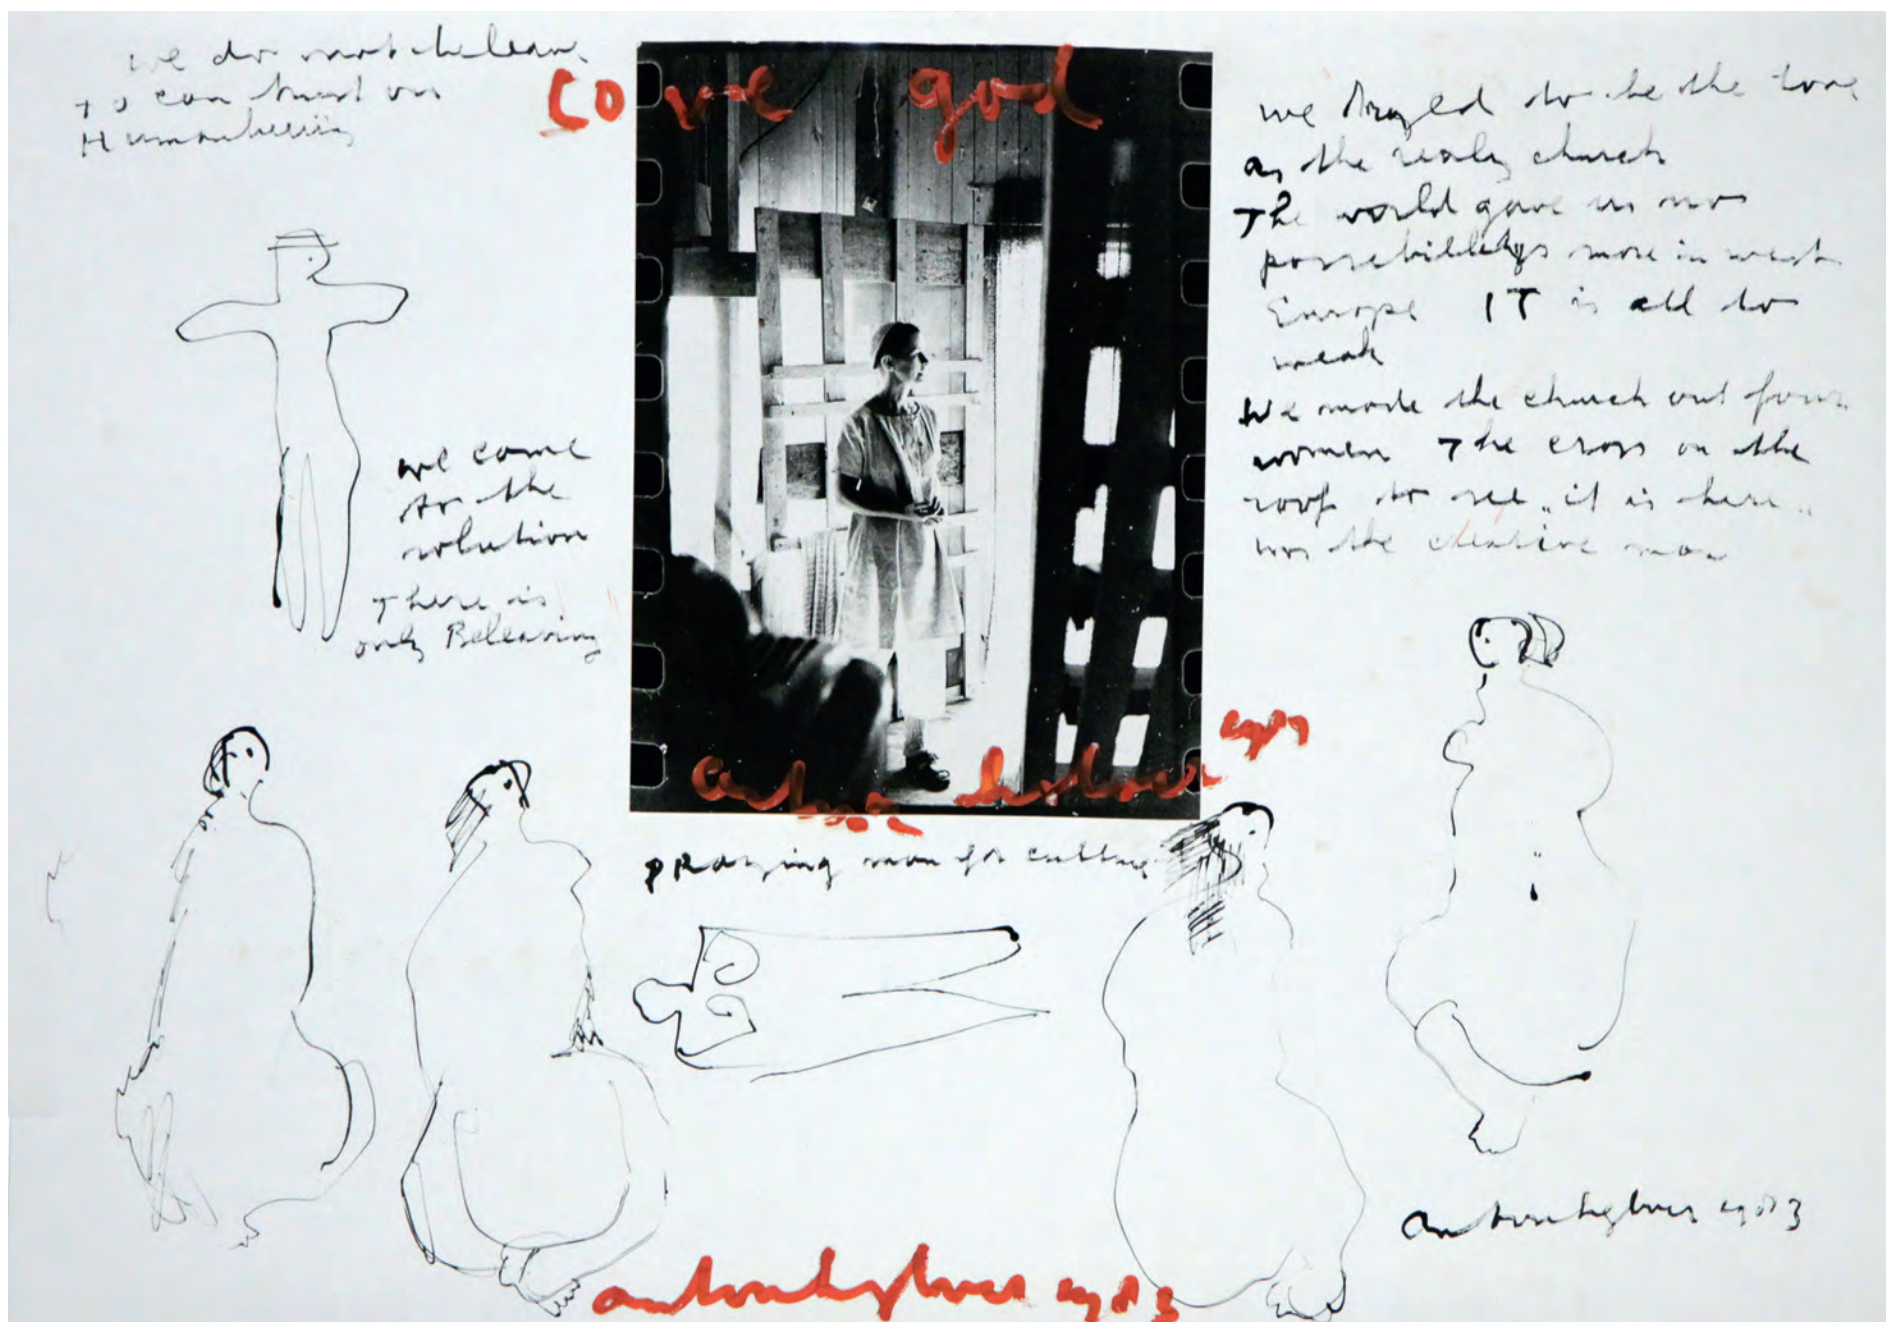 we do not beleave
to con trust on
Humanbeeing
come god
we trayed to be the
as the realy church
The world gave us no
possebilletys more in west
Europe IT is all to
weak
We made the church out four
women The cross on the
roof to see „it is here„
was the creative man
we come
to the
solution
There is
only Beleaving
anton heyboer 1983
PRaying man for culture
anton heyboer 1983
anton heyboer 1983